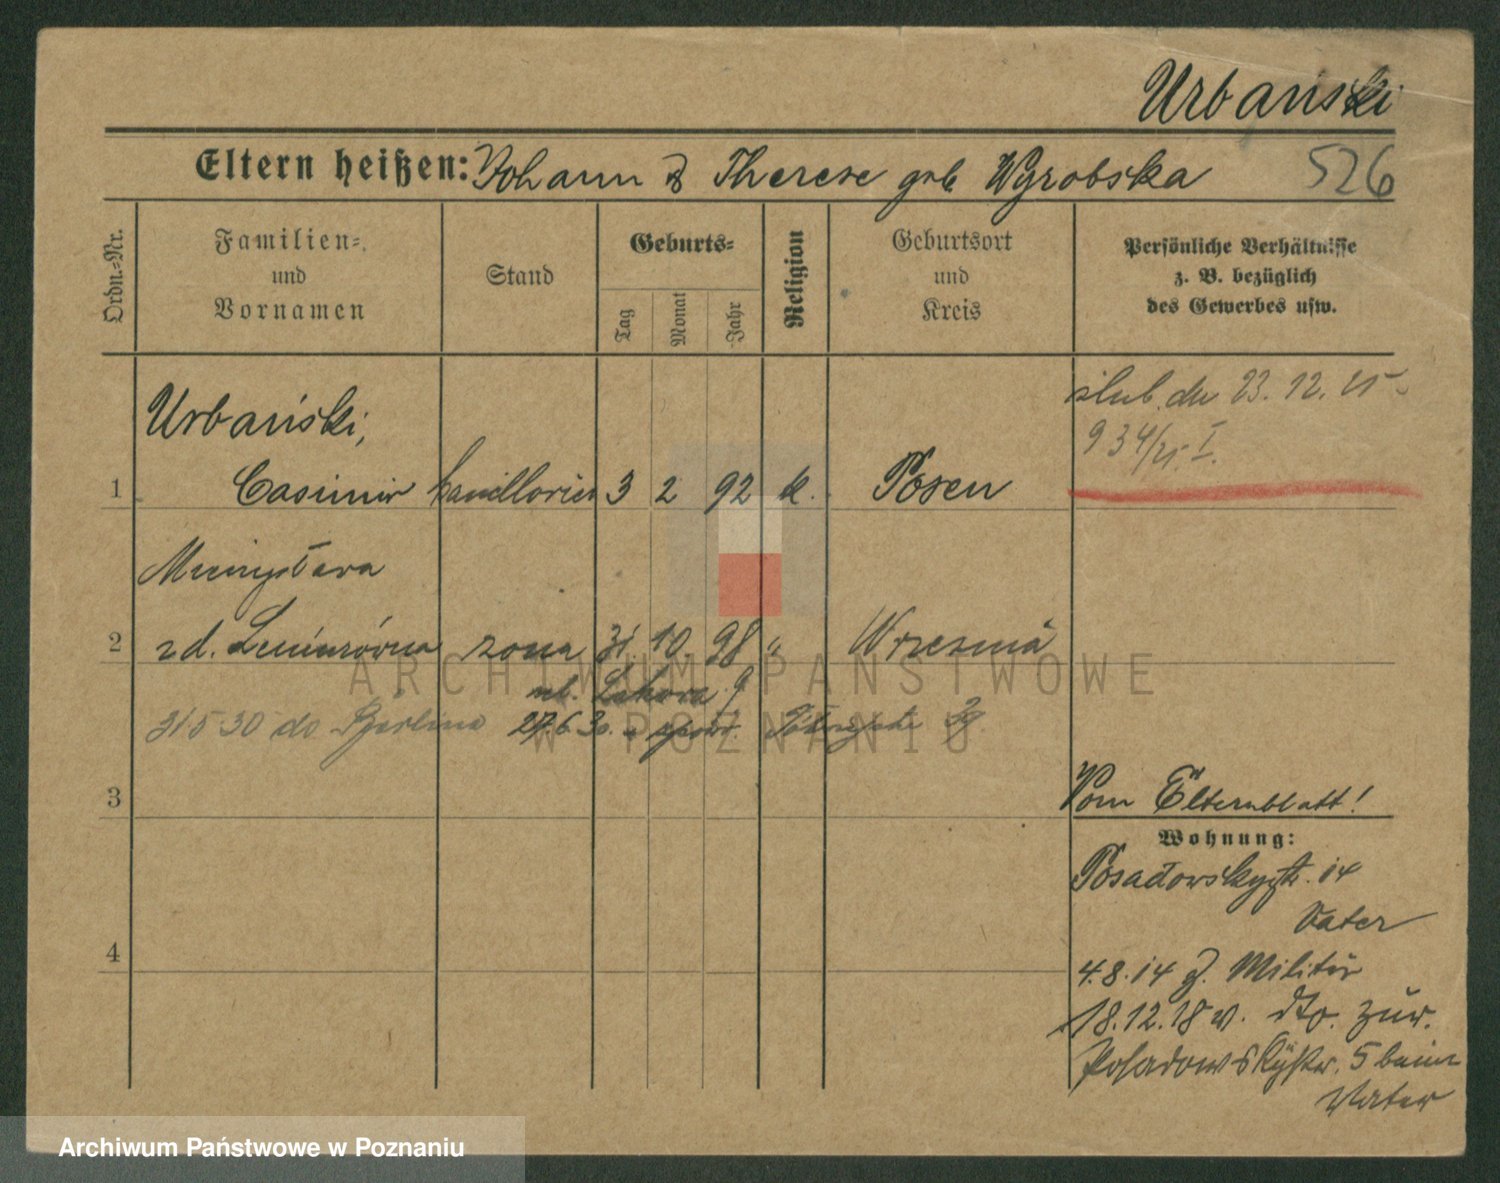 Urbański
Eltern heißen: Johann & Therese geb Wyrobska 526
Ordn.=Nr.
Familien=
und
Vornamen
Stand
Geburts=
Tag
Monat
Jahr
Religion
Geburtsort
und
Kreis
Persönliche Verhältnisse
z. B. bezüglich
des Gewerbes usw.
ślub. du 23. 12. 25
934/25. I.
Urbański,
1 Casimir 3 2 92 k. Posen
2 zd. żona 31. 10. 98 " Września
ARCHIWUM PAŃSTWOWE
W POZNANIU
31 5 30 do Berlina 27. 6. 30.
3
Vom Elternblatt!
Wohnung:
Posadowskystr. 14
Vater
4
4. 8. 14 z. Militär
18. 12. 18 v. dto. zur.
Posadowskystr. 5 beim
Vater
Archiwum Państwowe w Poznaniu